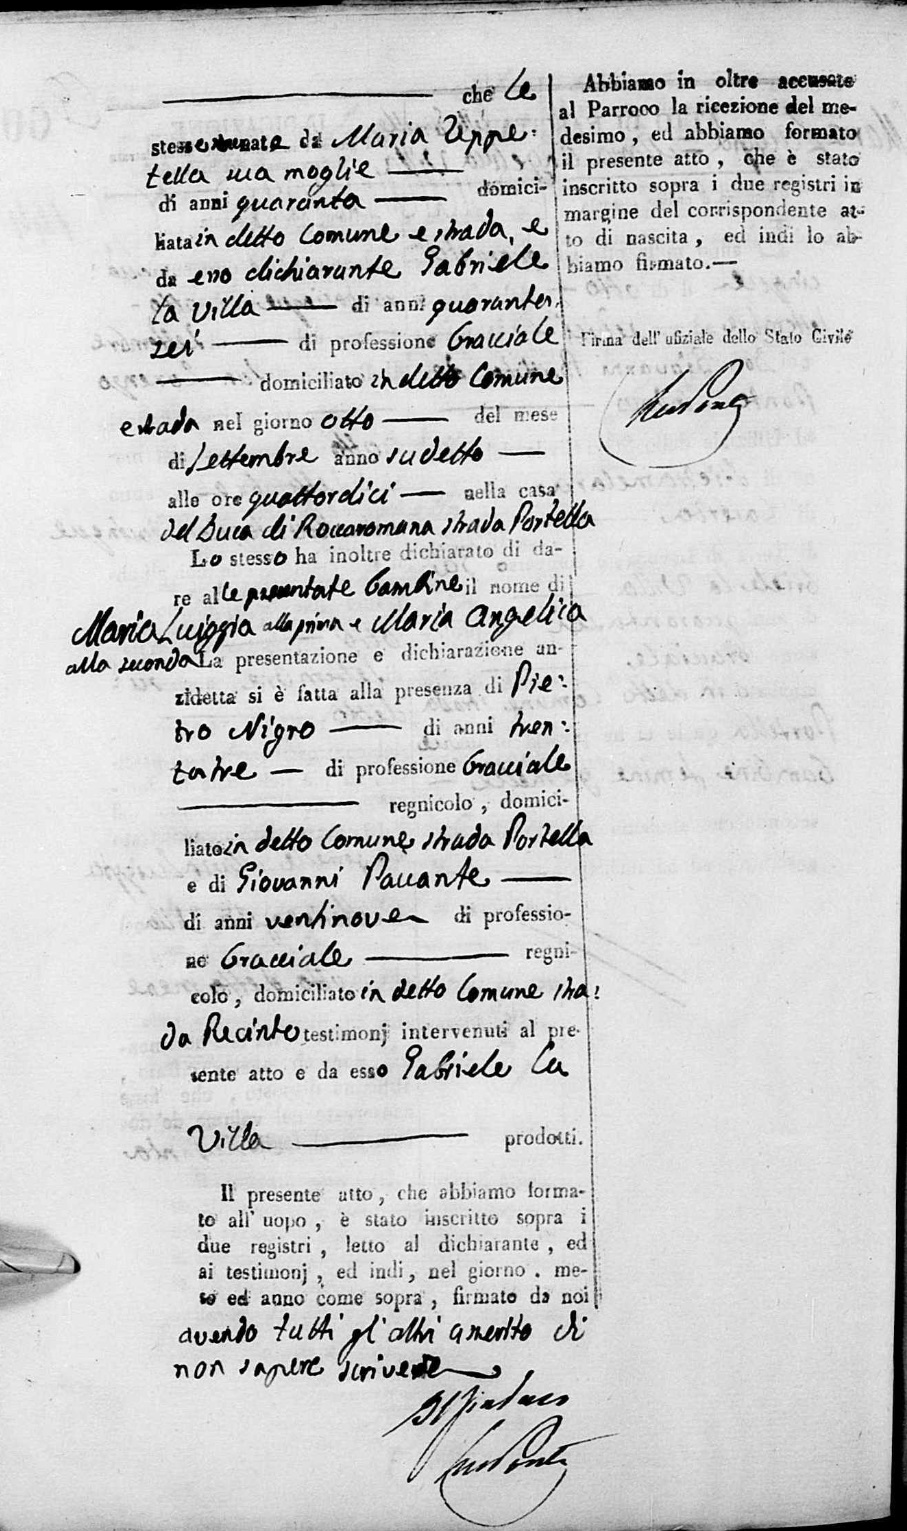 che le
stesse sono nate da Maria Zeppe=
tella sua moglie
di anni quaranta domici-
liata in detto Comune e strada, e
da esso dichiarante Gabriele
la Villa di anni quarante
sei di professione Bracciale
domiciliato in detto Comune
e strada nel giorno otto del mese
di Settembre anno sudetto
alle ore quattordici nella casa
del Duca di Roccaromana strada Portella
Lo stesso ha inoltre dichiarato di da-
re alle presentate bambine il nome di
Maria Luiggia alla prima e Maria Angelica
alla seconda La presentazione e dichiarazione an-
zidetta si è fatta alla presenza di Pie=
tro Nigro di anni tren=
tatre di professione Bracciale
regnicolo, domici-
liato in detto Comune strada Portella
e di Giovanni Paccante
di anni ventinove di professio-
ne Bracciale regni-
colo, domiciliato in detto Comune stra=
da Recinto testimonj intervenuti al pre-
sente atto e da esso Gabriele La
Villa prodotti.
Il presente atto, che abbiamo forma-
to all' uopo, è stato inscritto sopra i
due registri, letto al dichiarante, ed
ai testimonj, ed indi, nel giorno, me-
se ed anno come sopra, firmato da noi
avendo tutti gl'altri asserito di
non sapere scrivere
Il Sindaco
Abbiamo in oltre accusato
al Parroco la ricezione del me-
desimo, ed abbiamo formato
il presente atto, che è stato
inscritto sopra i due registri in
margine del corrispondente at-
to di nascita, ed indi lo ab-
biamo firmato.—
Firma dell' ufiziale dello Stato Civile